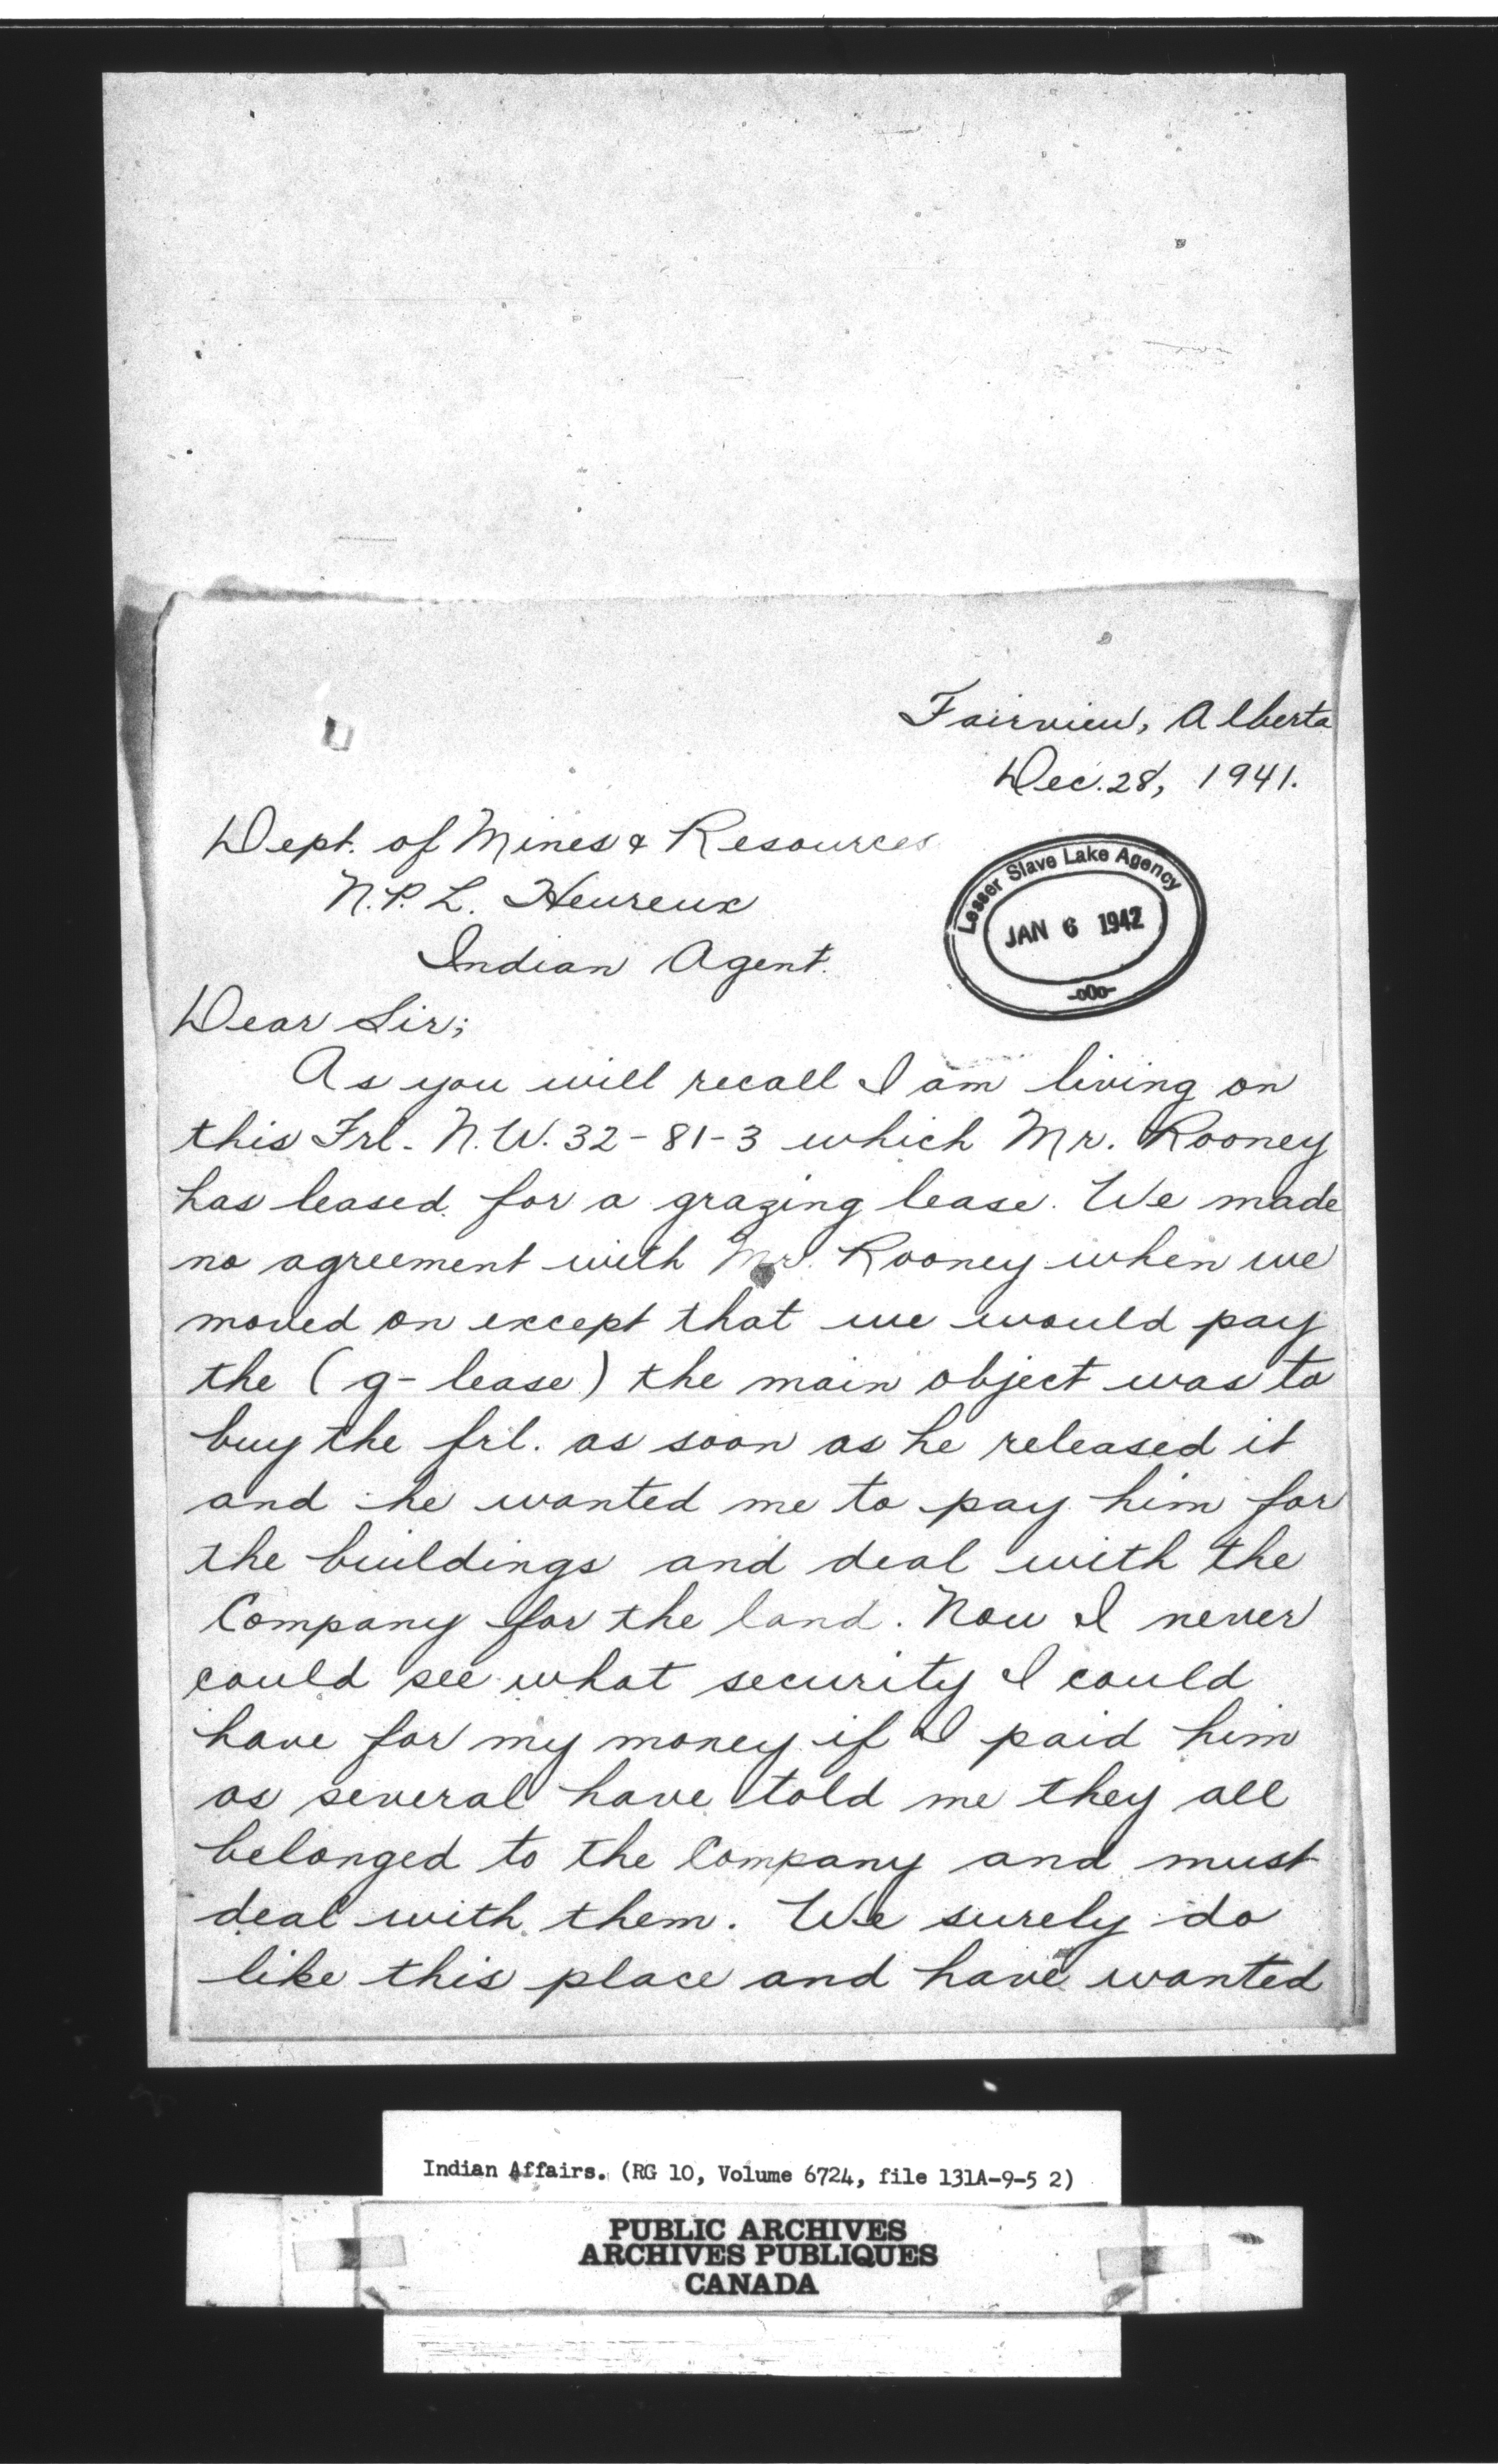 Fairview, Alberta
Dec. 28, 1941.
Dept. of Mines & Resources
N.P.L. Heureux
Indian Agent.
Lesser Slave Lake Agency
JAN 6 1942
-oOo-
Dear Sir;
As you will recall I am living on
this Frl. N.W. 32-81-3 which Mr. Rooney
has leased for a grazing lease. We made
no agreement with Mr. Rooney when we
moved on except that we would pay
the (g-lease) the main object was to
buy the frl. as soon as he released it
and he wanted me to pay him for
the buildings and deal with the
Company for the land. Now I never
could see what security I could
have for my money if I paid him
as several have told me they all
belonged to the Company and must
deal with them. We surely do
like this place and have wanted
Indian Affairs. (RG 10, Volume 6724, file 131A-9-5 2)
PUBLIC ARCHIVES
ARCHIVES PUBLIQUES
CANADA